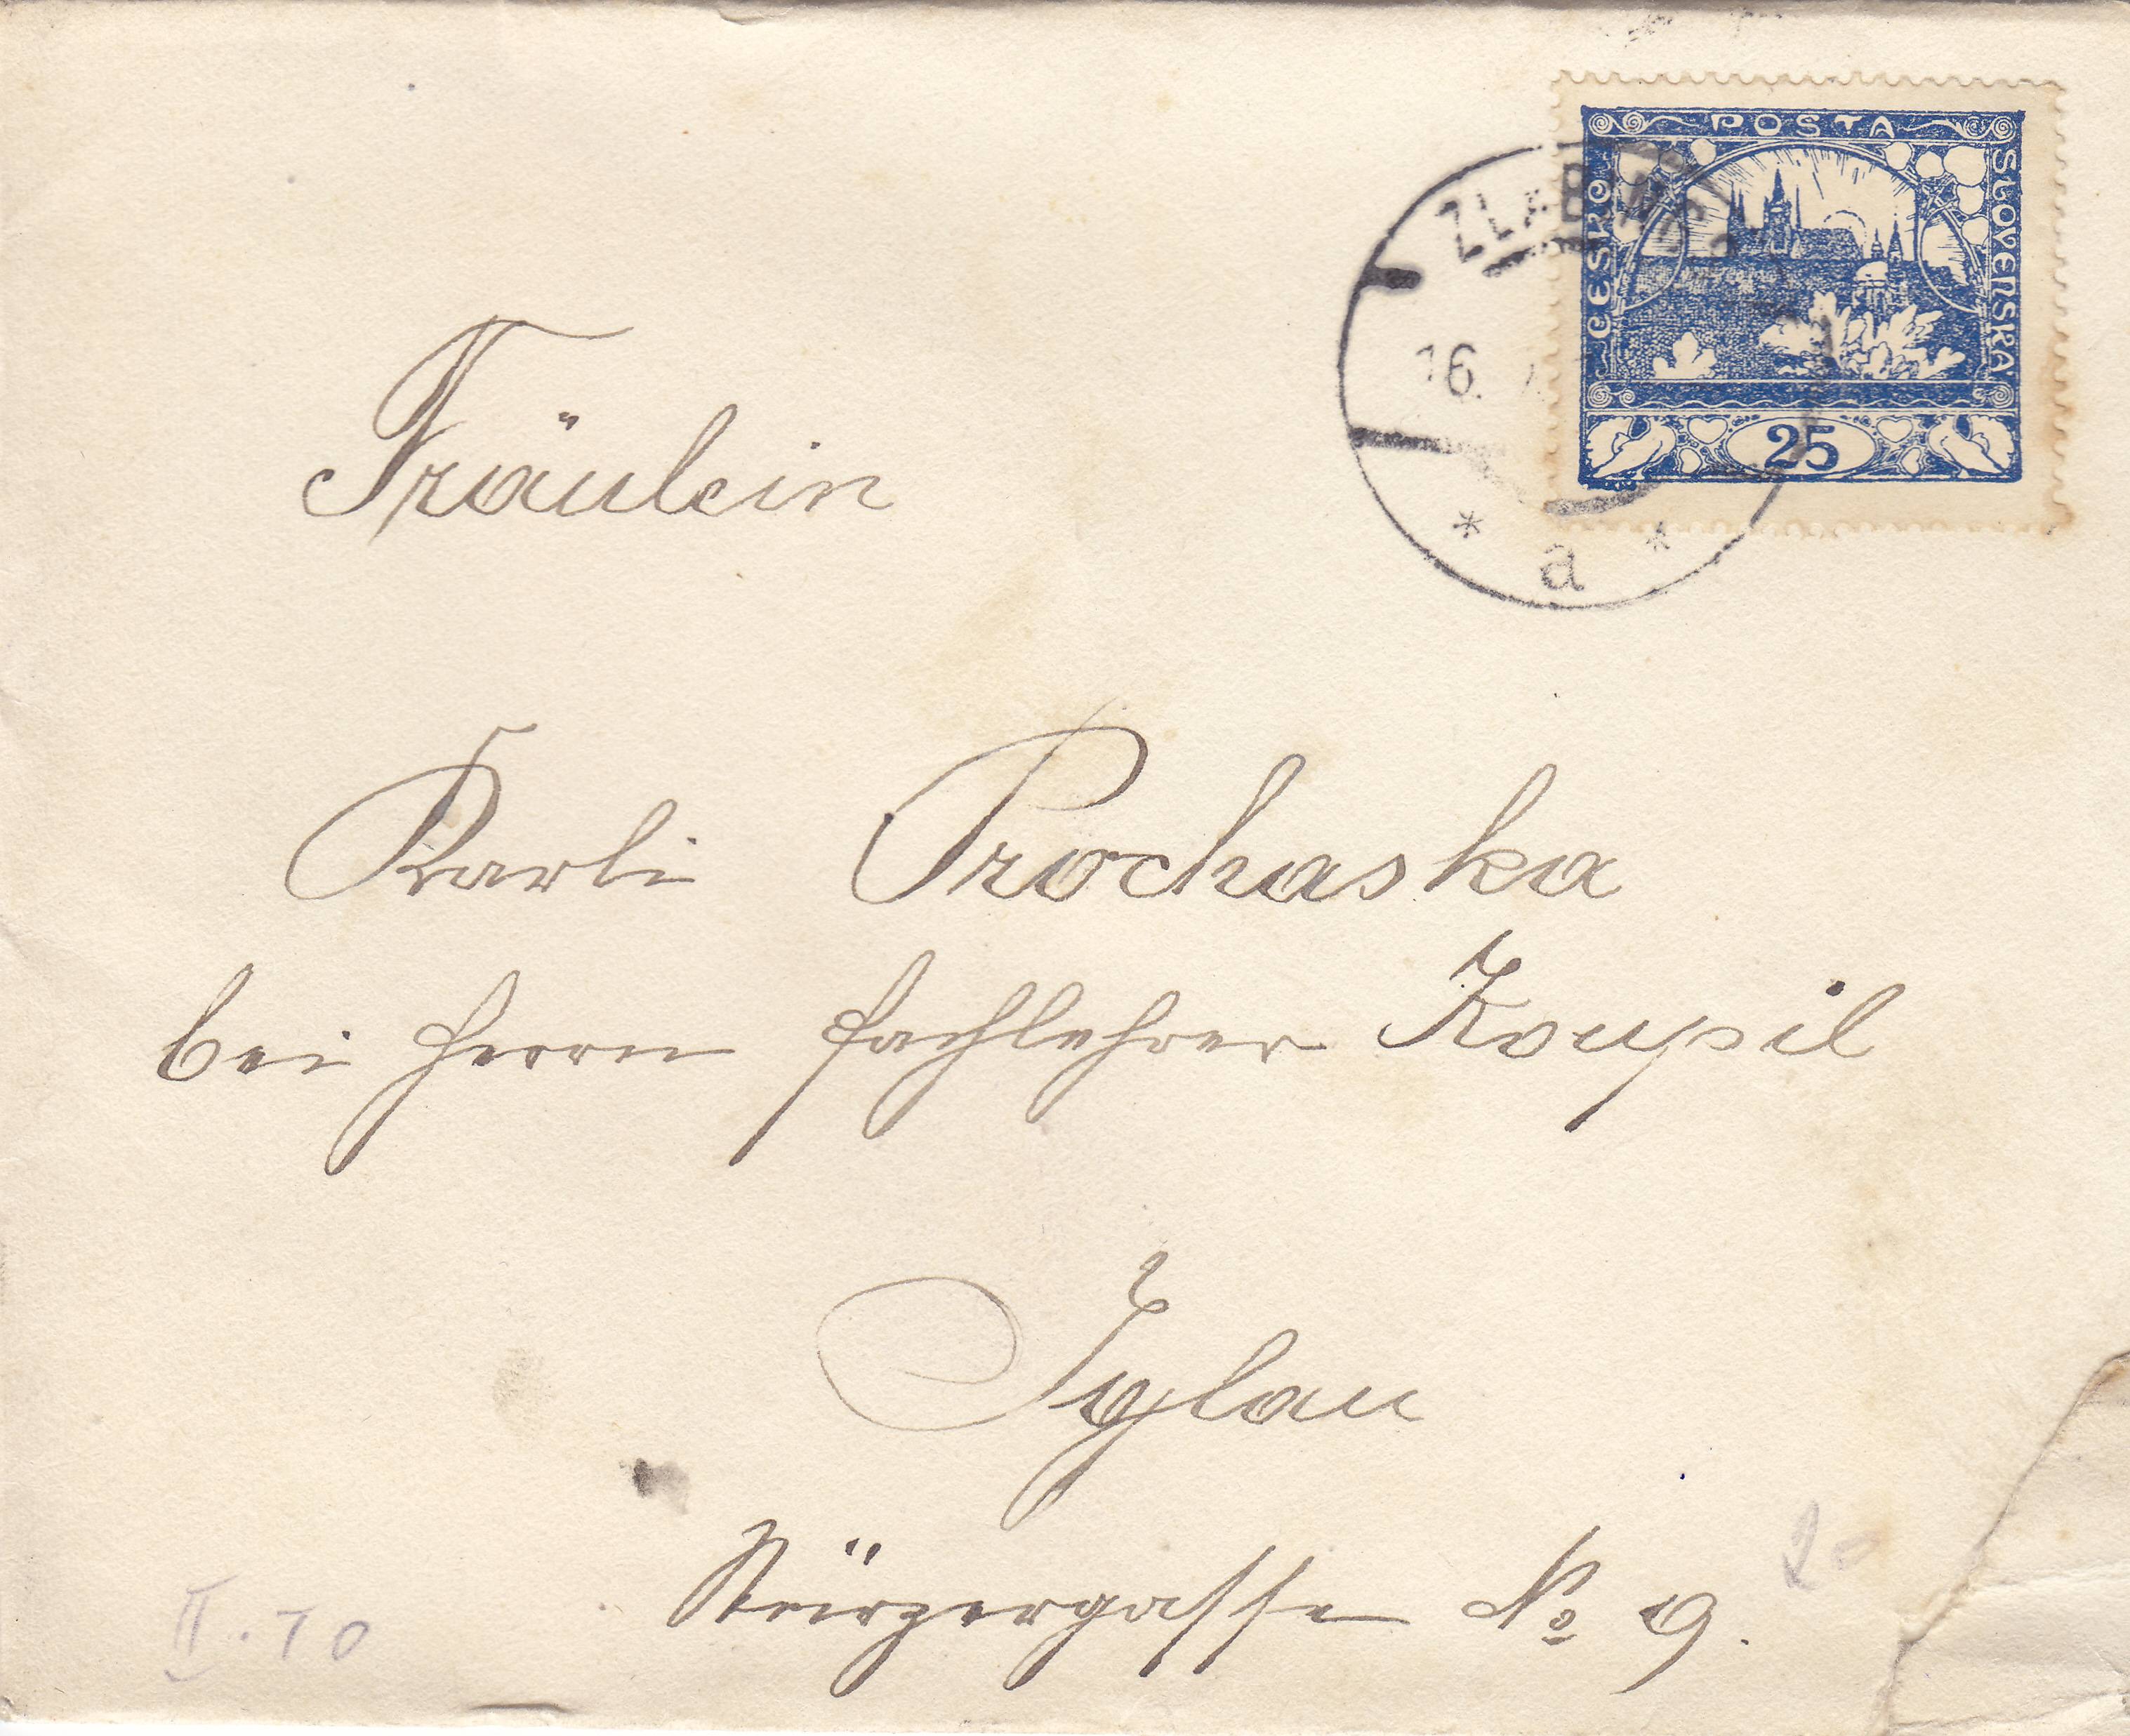 POSTA
ČESKO
SLOVENSKÁ
25
16.
* a *
Fräulein
Karli Prochaska
bei Herrn Fachlehrer Koupil
Iglau
Stürzergasse No 9.
II.10